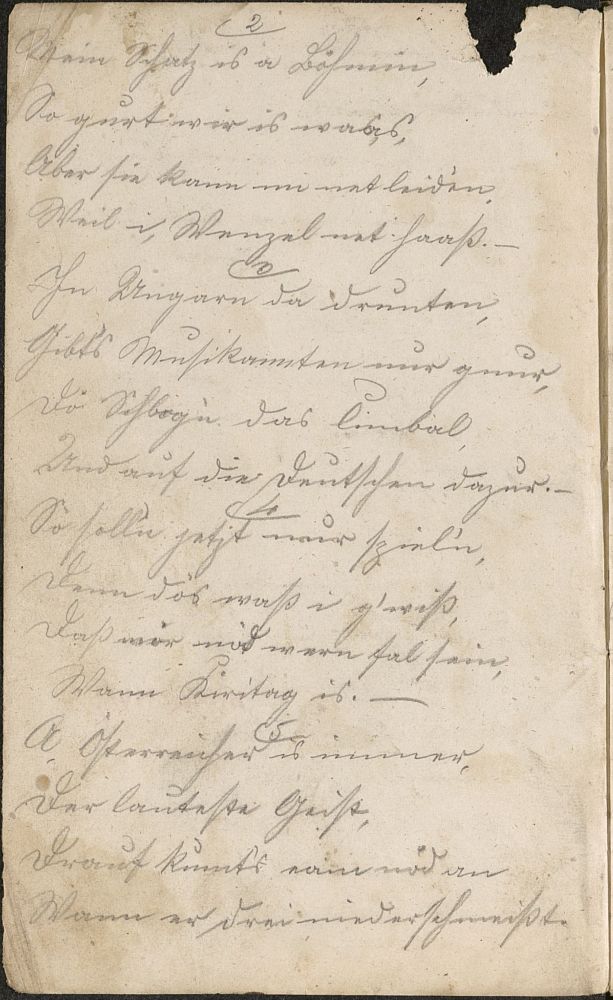 2
Mein Schatz is a Böhmin,
So gurt wir is waas,
Aber sie kann mi net leiden,
Weil i, Wenzel net haaß. —
3
In Ungarn da drunten,
Gibts Musikannten nur gnur,
Dö Schlog'n das Cimbal,
Und auf die Deutschen dazur. —
4
So soll'n jetzt nur spiel'n,
Denn dös waß i g'wiß,
Daß mir nöd wern fal sein,
Wann Kiritag is. —
5
A Österreicher is immer,
Der lauteste Geist,
Drauf kumts eam nöd an
Wann er drei niederschmeißt.